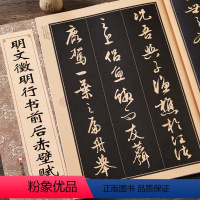 明文徵明行书前后赤壁赋
况吾与子渔樵于江渚
之上侣鱼虾而友麋
鹿驾一叶之扁舟举
粉象优品